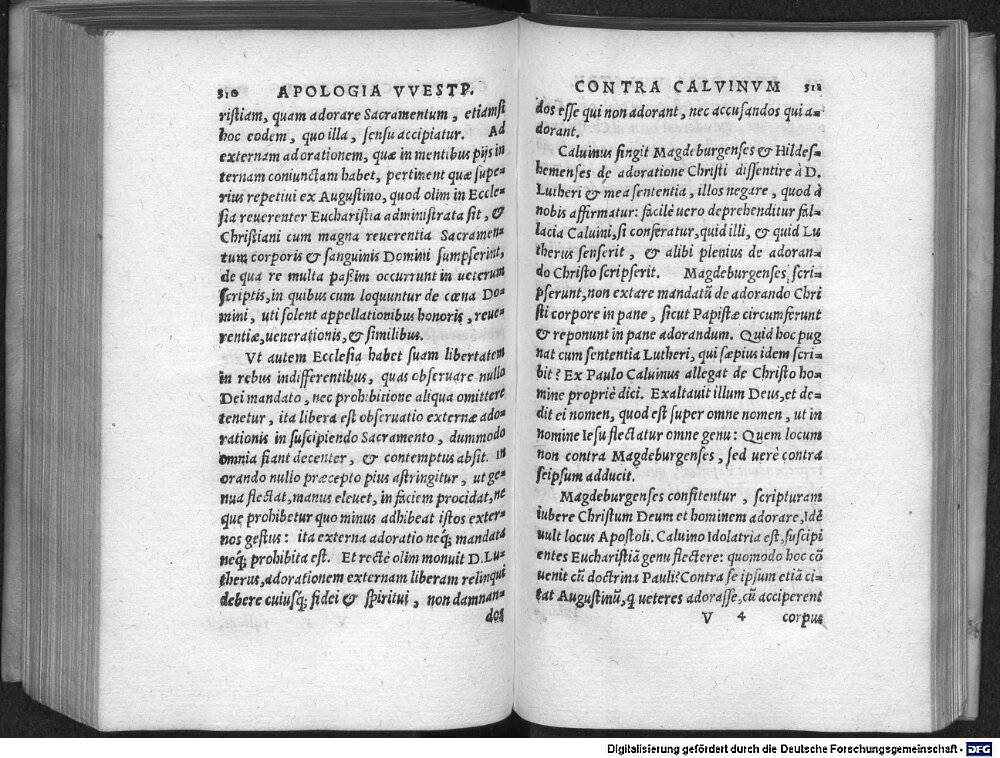 310 APOLOGIA VVESTP.
ristiam, quam adorare Sacramentum, etiamsi
hoc eodem, quo illa, sensu accipiatur. Ad
externam adorationem, quæ in mentibus pijs in
ternam coniunctam habet, pertinent quæ supe-
rius repetiui ex Augustino, quod olim in Eccle-
sia reuerenter Eucharistia administrata sit, &
Christiani cum magna reuerentia Sacramen-
tum corporis & sanguinis Domini sumpserint,
de qua re multa paßim occurrunt in ueterum
scriptis, in quibus cum loquuntur de cœna Do-
mini, uti solent appellationibus honoris, reue-
rentiæ, uenerationis, & similibus.
Vt autem Ecclesia habet suam libertatem
in rebus indifferentibus, quas obseruare nullo
Dei mandato, nec prohibitione aliqua omittere
tenetur, ita libera est obseruatio externæ ado-
rationis in suscipiendo Sacramento, dummodo
omnia fiant decenter, & contemptus absit. In
orando nullo præcepto pius astringitur, ut ge-
nua flectat, manus eleuet, in faciem procidat, ne
que prohibetur quo minus adhibeat istos exter-
nos gestus: ita externa adoratio neq; mandata
neq; prohibita est. Et rectè olim monuit D. Lu-
therus, adorationem externam liberam relinqui
debere cuiusq; fidei & spiritui, non damnan-
dos
CONTRA CALVINVM 311
dos esse qui non adorant, nec accusandos qui a-
dorant.
Caluinus fingit Magdeburgenses & Hildes-
hemenses de adoratione Christi dissentire à D.
Lutheri & mea sententia, illos negare, quod à
nobis affirmatur: facilè uero deprehenditur fal-
lacia Caluini, si conferatur, quid illi, & quid Lu
therus senserit, & alibi plenius de adoran-
do Christo scripserit. Magdeburgenses scri-
pserunt, non extare mandatũ de adorando Chri
sti corpore in pane, sicut Papistæ circumferunt
& reponunt in pane adorandum. Quid hoc pug
nat cum sententia Lutheri, qui sæpius idem scri-
bit? Ex Paulo Caluinus allegat de Christo ho-
mine propriè dici. Exaltauit illum Deus, et de-
dit ei nomen, quod est super omne nomen, ut in
nomine Iesu flectatur omne genu: Quem locum
non contra Magdeburgenses, sed uerè contra
seipsum adducit.
Magdeburgenses confitentur, scripturam
iubere Christum Deum et hominem adorare, Idẽ
uult locus Apostoli. Caluino Idolatria est, suscipi
entes Eucharistiã genu flectere: quomodo hoc cõ
uenit cũ doctrina Pauli? Contra se ipsum etiã ci-
tat Augustinũ, q ueteres adorasse, cũ acciperent
V 4 corpus
Digitalisierung gefördert durch die Deutsche Forschungsgemeinschaft - DFG